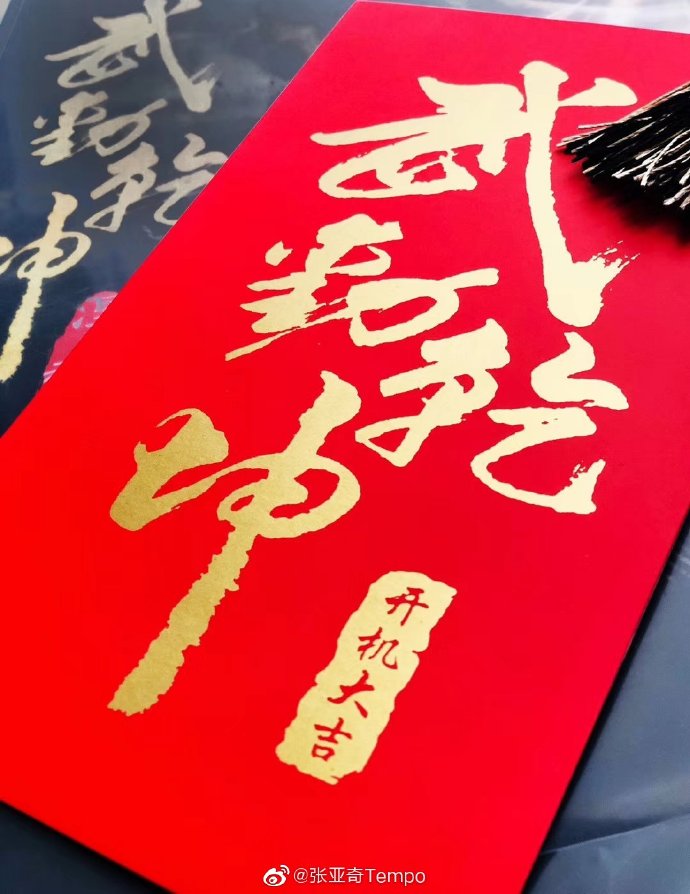 武動乾坤
武動乾坤
开机大吉
@张亚奇Tempo